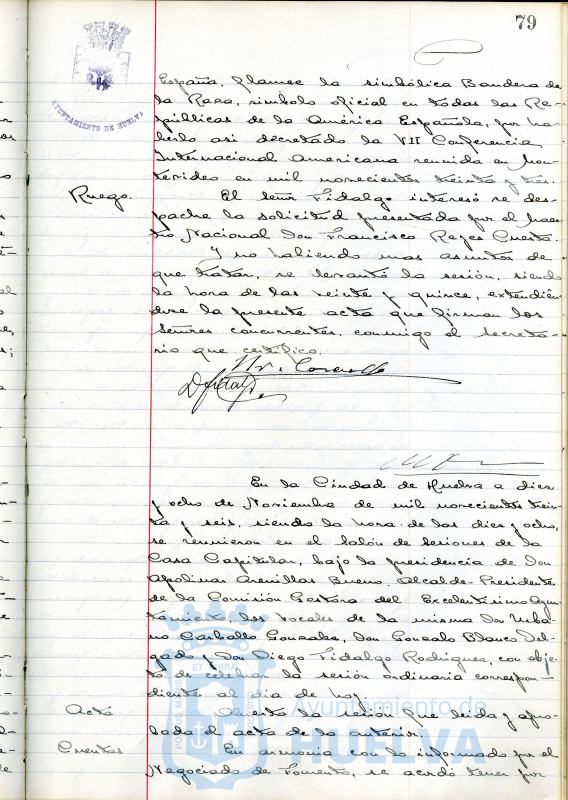 79
AYUNTAMIENTO DE HUELVA
España, flamee la simbólica Bandera de
la Raza, símbolo oficial en todas las Re-
públicas de la América Española, por ha-
berlo asi decretado la VII Conferencia
Internacional Americana reunida en Mon-
tevideo en mil novecientos treinta y tres.
Ruego.
El señor Fidalgo interesó se des-
pache la solicitud presentada por el Maes-
tro Nacional don Francisco Reyes Cuesta.
Y no habiendo mas asuntos de
que tratar, se levantó la sesión, siendo
la hora de las veinte y quince, extendién-
dose la presente acta que firman los
señores concurrentes, conmigo el secreta-
rio que certifico.
En la Ciudad de Huelva a diez
y ocho de Noviembre de mil novecientos trein-
ta y seis, siendo la hora de las diez y ocho,
se reunieron en el Salón de Sesiones de la
Casa Capitular, bajo la presidencia de don
Apolinar Arenillas Bueno, Alcalde-Presidente
de la Comisión Gestora del Excelentísimo Ayun-
tamiento, los vocales de la misma don Urba-
no Carballo Gonzalez, don Gonzalo Blanco Del-
gado y don Diego Fidalgo Rodriguez, con obje-
to de celebrar la sesión ordinaria correspon-
diente al día de hoy.
Acta
Abierta la sesión fue leida y apro-
bada el acta de la anterior.
Cuentas
En armonía con lo informado por el
Negociado de Fomento, se acordó tener por
Ayuntamiento de
HUELVA